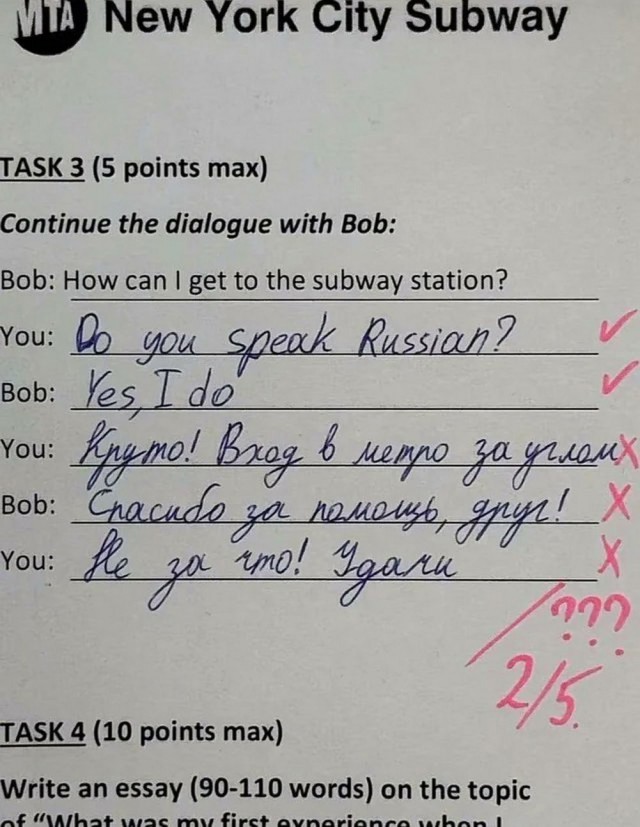 MTA New York City Subway
TASK 3 (5 points max)
Continue the dialogue with Bob:
Bob: How can I get to the subway station?
You: Do you speak Russian? ✓
Bob: Yes, I do ✓
You: Круто! Вход в метро за углом X
Bob: Спасибо за помощь, друг! X
You: Не за что! Удачи X
???
2/5.
TASK 4 (10 points max)
Write an essay (90-110 words) on the topic
of “What was my first experience when I